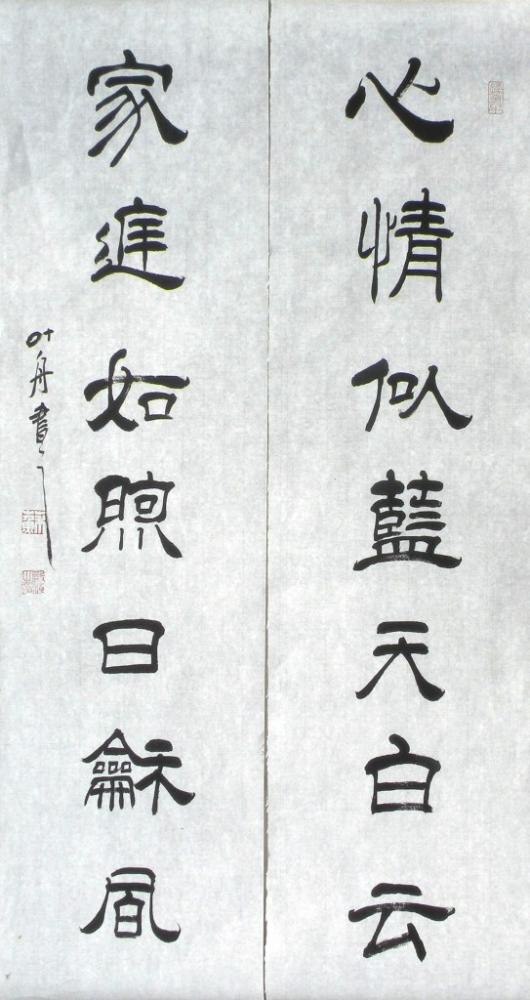 心情似藍天白云
家庭如煦日龢風
叶舟書